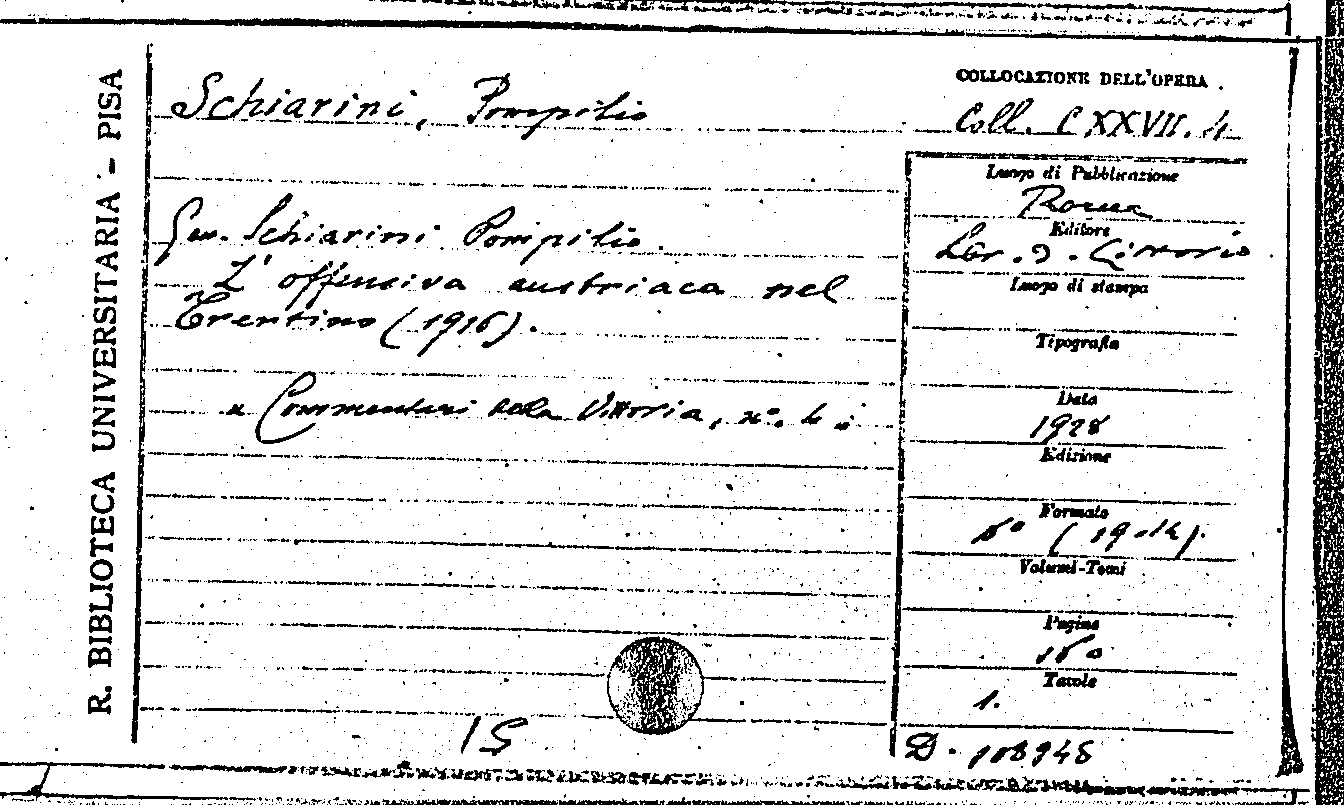 R. BIBLIOTECA UNIVERSITARIA - PISA
Schiarini, Pompilio
Gen. Schiarini Pompilio.
L' offensiva austriaca nel
Trentino (1916).
" Commentari della Vittoria, n°. 4 "
15
COLLOCAZIONE DELL'OPERA
Coll. C XXVII. 4
Luogo di Pubblicazione
Roma
Editore
Lbr. d. Littorio
Luogo di stampa
Tipografia
Data
1928
Edizione
Formato
(19
Volumi-Tomi
Pagine
160
Tavole
1.
D. 108948